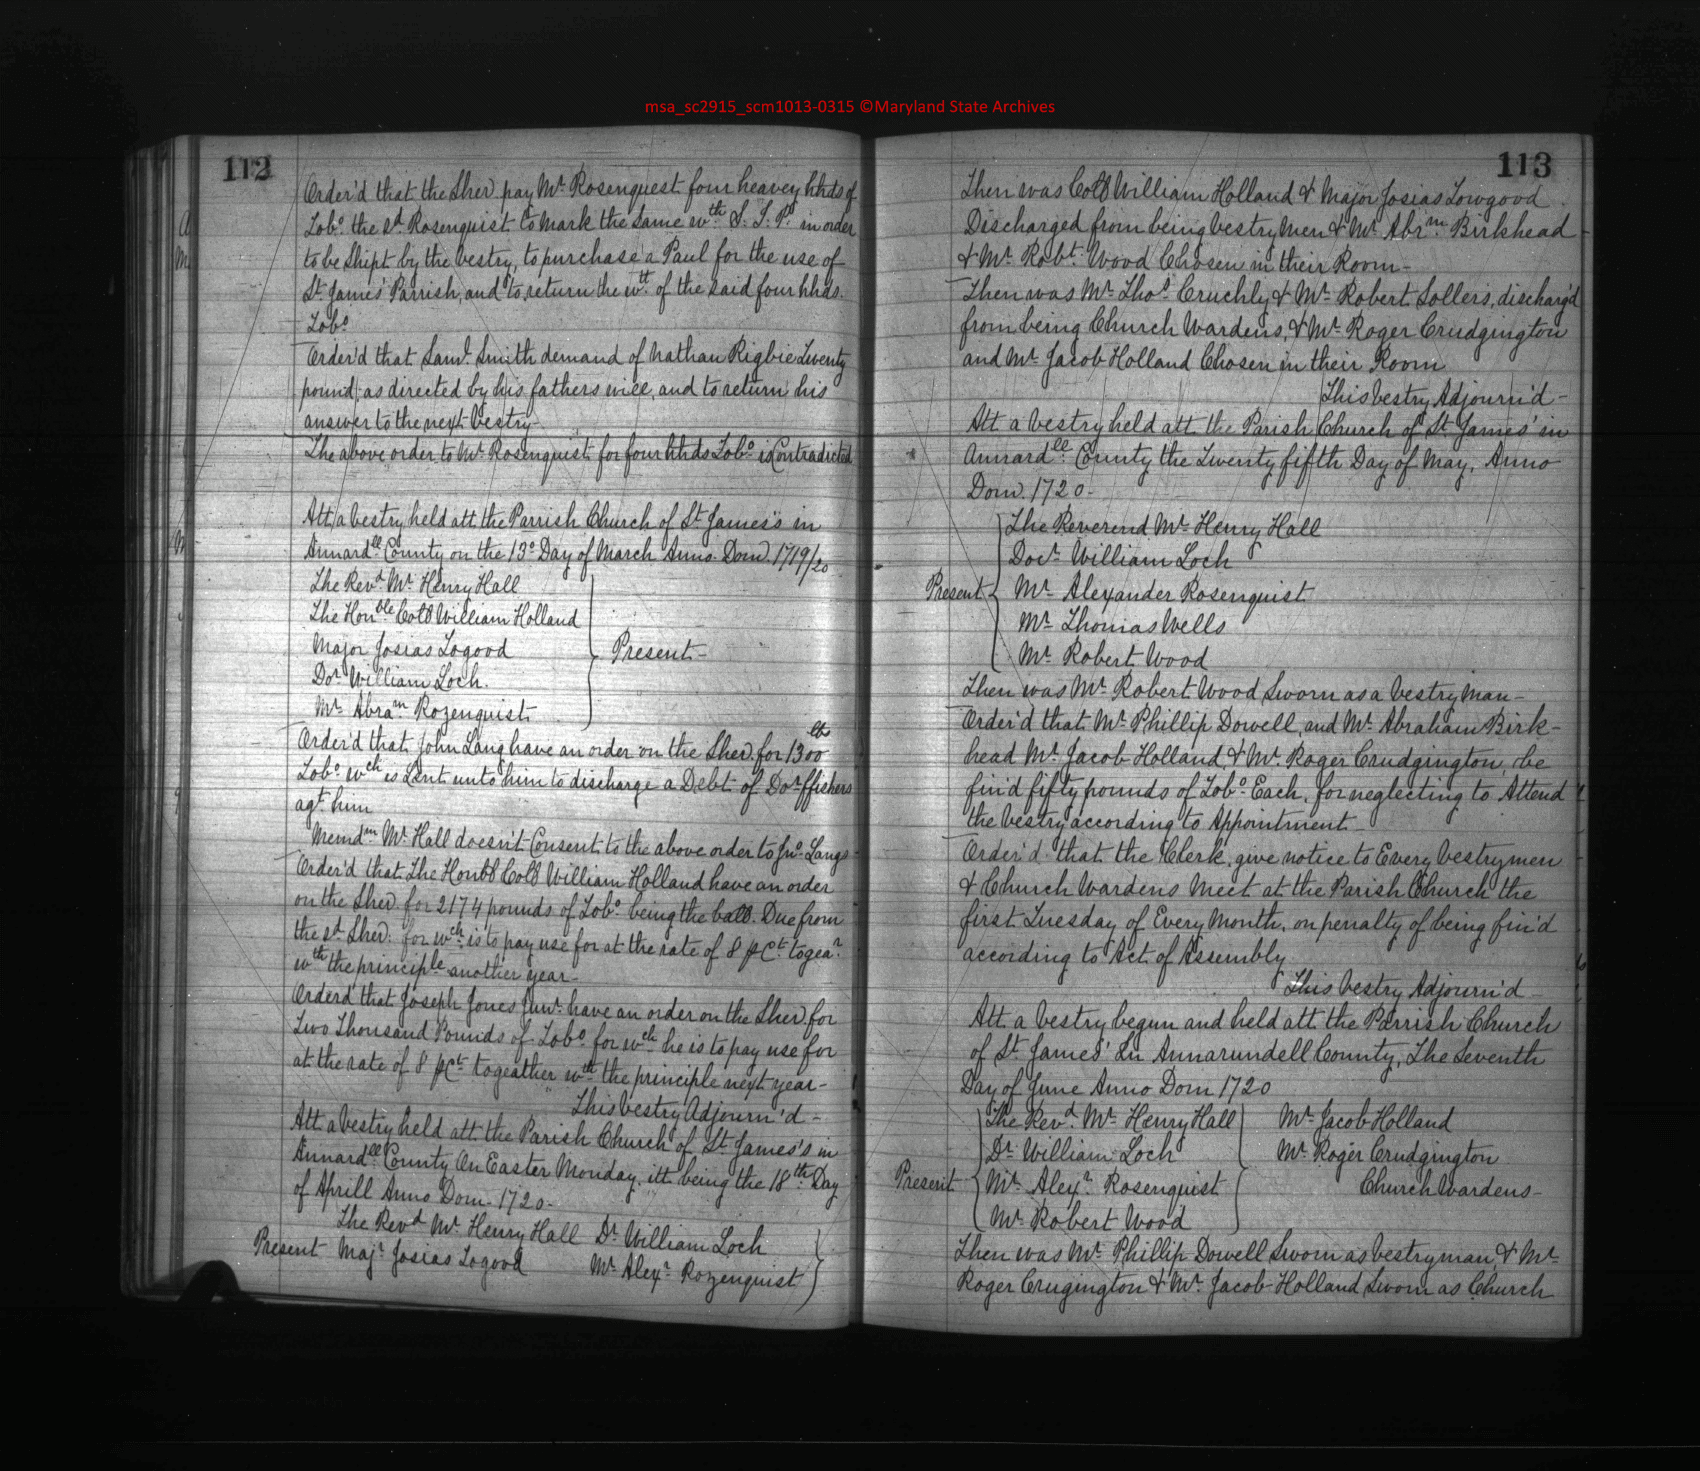 msa_sc2915_scm1013-0315 ©Maryland State Archives
112
Order'd that the Sher. pay Mr. Rosenquest four heavey hhds of
Tobo. the sd. Rosenquist to mark the same wth S. J. Ph in order
to be Shipt by the vestry, to purchase a Paul for the use of
St. James' Parrish, and to return the wtt. of the said four hhds.
Tobo.
Order'd that Saml. Smith demand of Nathan Rigbie Twenty
pound; as directed by his fathers will, and to return his
answer to the next vestry-
The above order to Mr. Rosenquist for four hhds Tobo. is Contradicted
Att a vestry held att the Parrish Church of St. James's in
Annardll County on the 13o Day of March Anno Dom. 1719/20
The Revd. Mr. Henry Hall
The Honble Coll William Holland
Major Josias Togood
Present-
Dor. William Loch.
Mr. Abram. Rozenquist
Order'd that John Lang have an order on the Sher. for 1300 lb
Tobo. wch is Lent unto him to discharge a Debt of Dor. ffishers
agt him
Memdm Mr. Hall doesn't Consent to the above order to Jno. Langs-
Order'd that The Honbll Coll William Holland have an order
on the Sher. for 2174 pounds of Tobo. being the ball. Due from
the sd. Sher: for wch. is to pay use for at the rate of 8 p Ct. togear.
wth the principle another year-
Orderd that Joseph Jones Junr. have an order on the Sher. for
Two Thousand Pounds of Tobo. for wch he is to pay use for
at the rate of 8 p Ct. togeather wth the principle next year-
This vestry Adjourn'd-
Att a vestry held att the Parish Church of St. James's in
Annardll County On Easter Monday, itt being the 18th. Day
of Aprill Anno Dom. 1720-
The Revd. Mr. Henry Hall Dr. William Loch
Present Majr. Josias Togood Mr. Alexr. Rozenquist
113
Then was Coll William Holland & Major Josias Towgood
Discharged from being vestry men & Mr. Abrm. Birkhead
& Mr. Robt. Wood Chosen in their Room-
Then was Mr. Thos. Cruchly & Mr. Robert Sollers, discharg'd
from being Church Wardens, & Mr. Roger Crudgington
and Mr. Jacob Holland Chosen in their Room
This vestry Adjourn'd-
Att a vestry held att the Parish Church of St. James' in
Annardll County the Twenty fifth Day of May, Anno
Dom. 1720-
The Reverend Mr. Henry Hall
Docr. William Loch
Present Mr. Alexander Rosenquist
Mr. Thomas Wells
Mr. Robert Wood
Then was Mr. Robert Wood Sworn as a vestry man-
Order'd that Mr. Phillip Dowell, and Mr. Abraham Birk-
head Mr. Jacob Holland, & Mr. Roger Crudgington, be
fin'd fifty pounds of Tobo. Each, for neglecting to Attend
the vestry according to Appointment-
Order'd that the Clerk, give notice to Every vestrymen
& Church Wardens Meet at the Parish Church the
first Tuesday of Every Month, on penalty of being fin'd
according to Act of Assembly
This vestry Adjourn'd
Att a vestry begun and held att the Parrish Church
of St. James' In Annarundell County, The Seventh
Day of June Anno Dom 1720
The Revd. Mr. Henry Hall Mr. Jacob Holland
Dr. William Loch Mr. Roger Crudgington
Present Mr. Alexr. Rosenquist Church Wardens-
Mr. Robert Wood
Then was Mr. Phillip Dowell Sworn as vestryman, & Mr.
Roger Crugington & Mr. Jacob Holland Sworn as Church